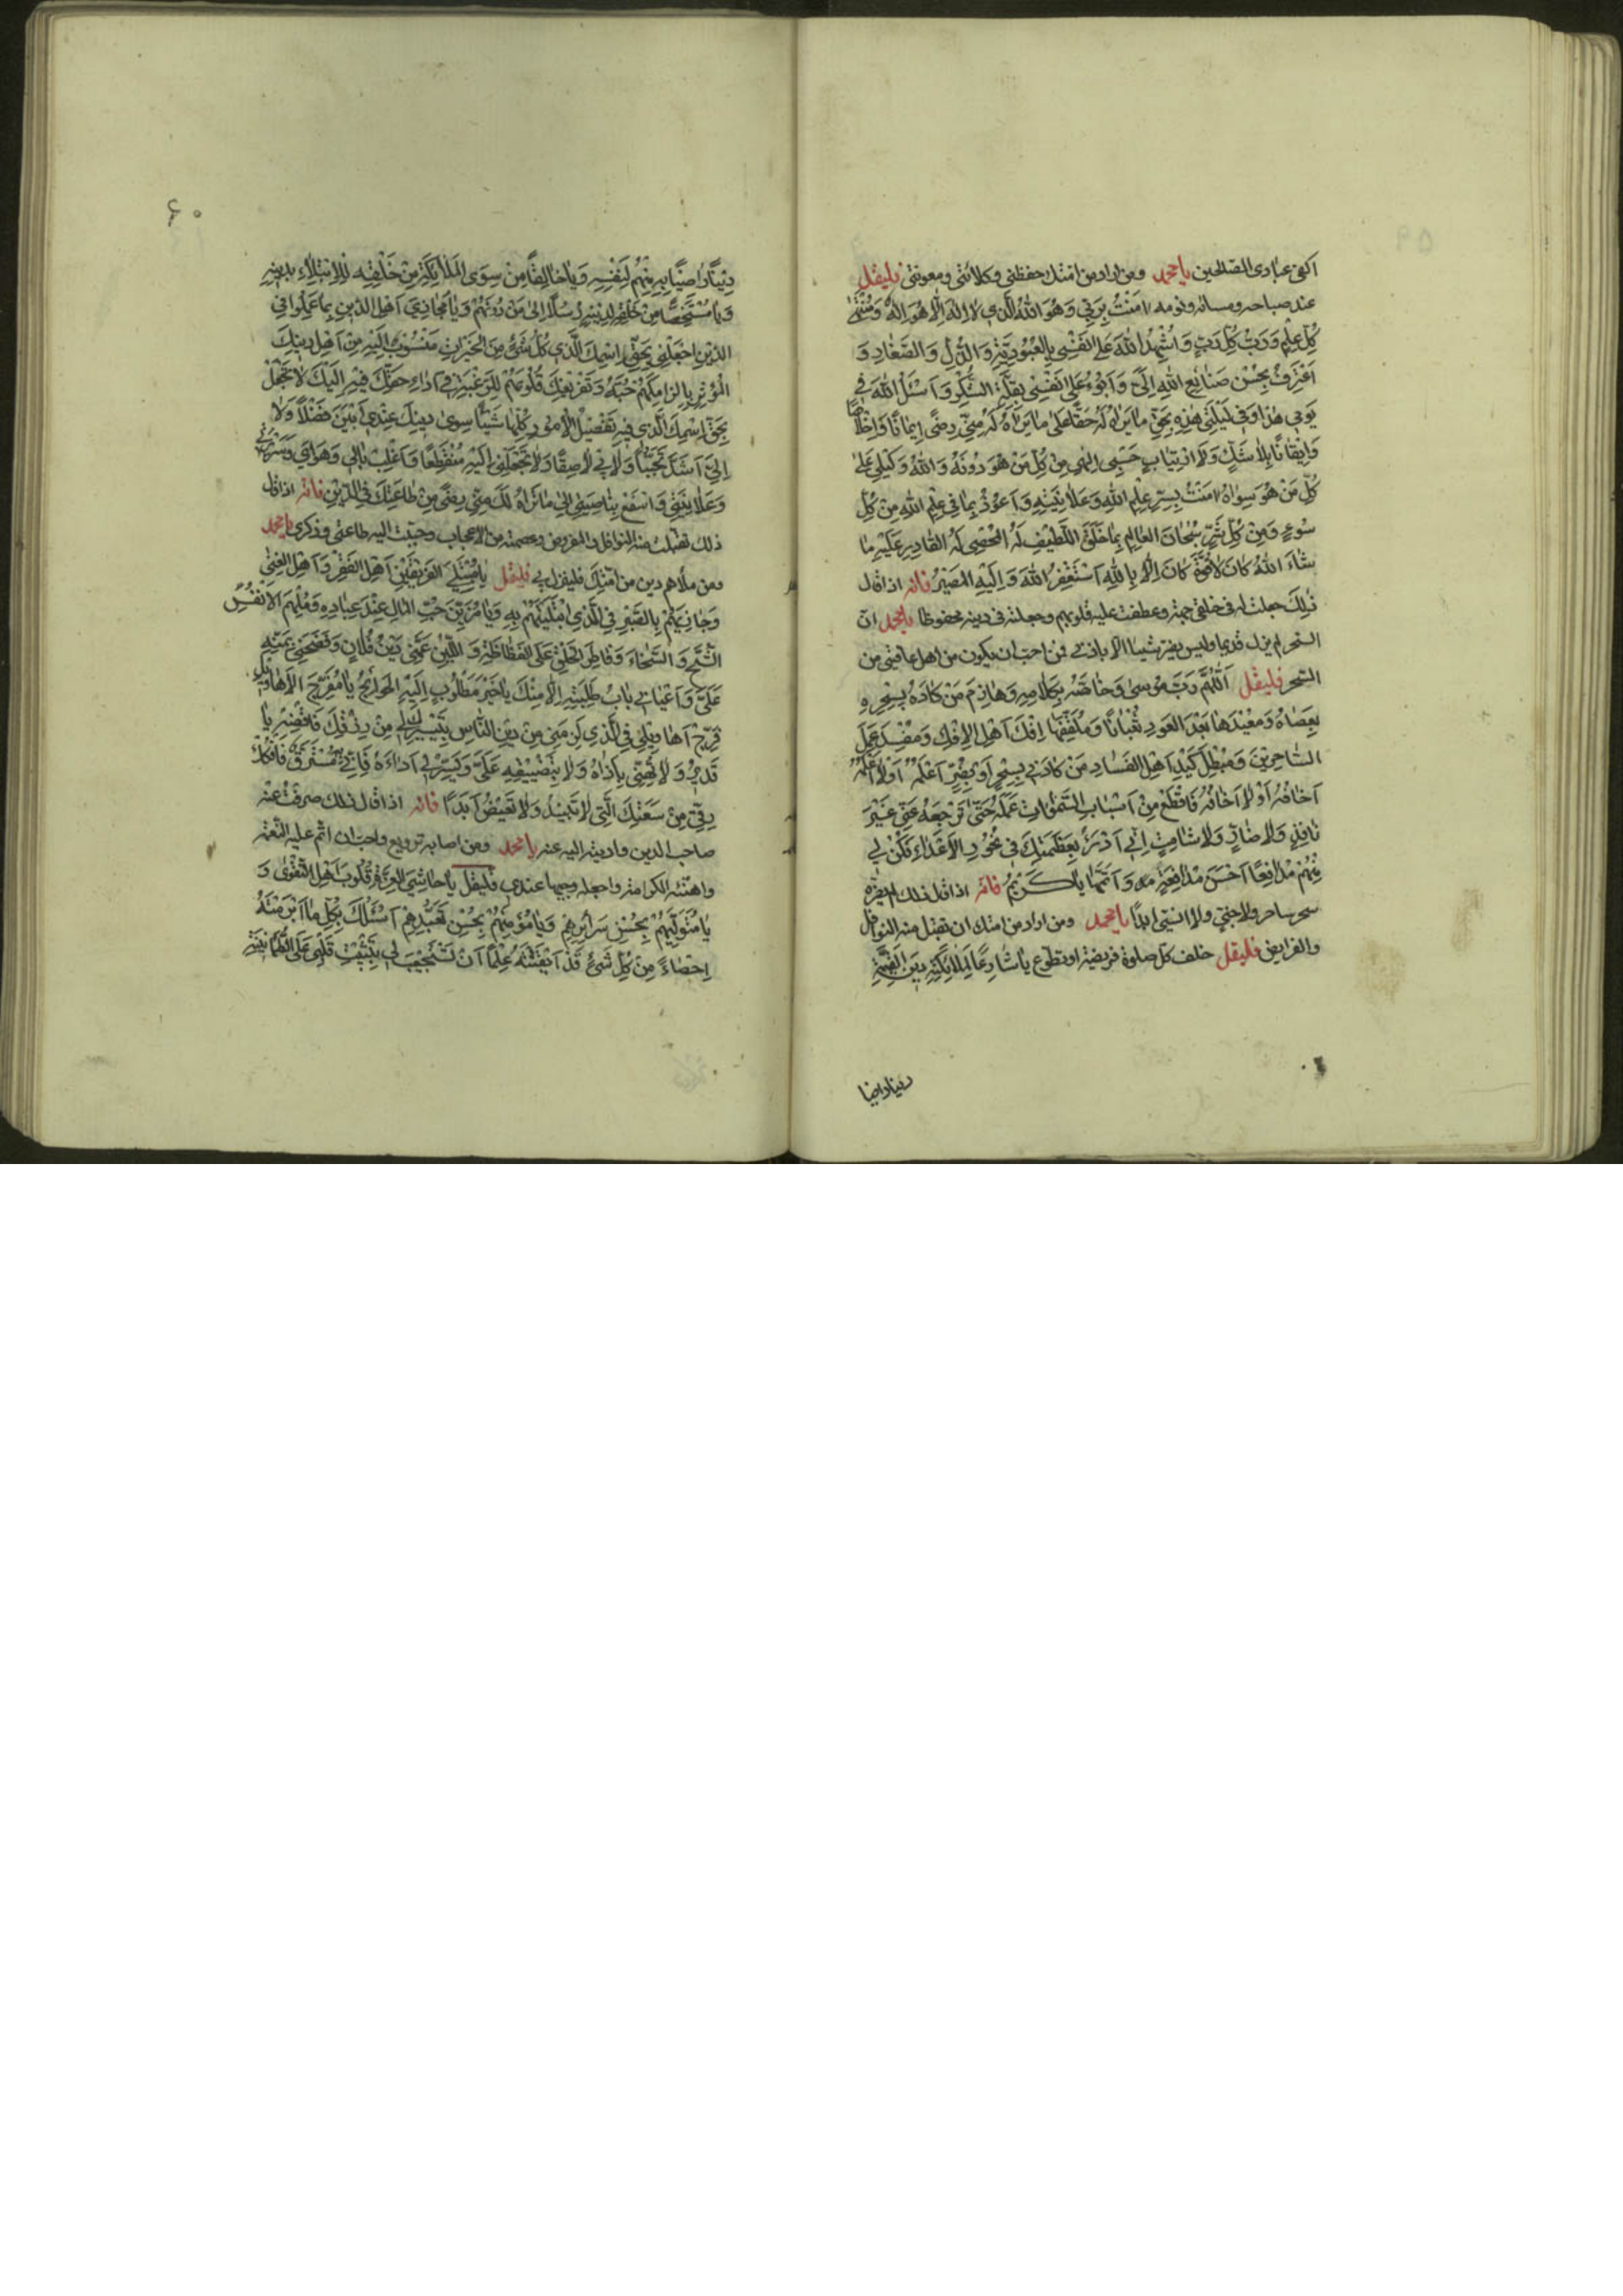 اكفى عبادى الصالحين يا محمد ومن اراد من امتك حفظى وكلائتى ومعونتى فليقل
عند صباحه ومسائه ونومه امَنْتُ بِرَبّى وَهُوَ اللهُ الَّذى لا اِلهَ اِلّا هُوَ اِلهُ وَمُنْتَهى
كُلِّ عِلْمٍ وَرَبُّ كُلِّ رَبٍّ وَاُشْهِدُ اللهَ عَلى نَفْسى بِالعُبُودِيَّةِ وَالذُّلِّ وَالصَّغارِ وَ
اَعْتَرِفُ بِحُسْنِ صَنائِعِ اللهِ اِلَىَّ وَاَبُوءُ عَلى نَفْسى بِقِلَّةِ الشُّكْرِ وَاَسْئَلُ اللهَ فى
يَوْمى هذا وَفى لَيْلَتى هذِهِ بِحَقِّ ما يَراهُ لَهُ حَقًّا عَلى ما يَراهُ لَهُ مِنّى رِضًى ايمانًا وَاِخْلاصًا
وَايقانًا بِلا شَكٍّ وَلَا ارْتِيابٍ حَسْبى اِلهى مِنْ كُلِّ مَنْ هُوَ دُونَهُ وَاللهُ وَكيلى عَلى
كُلِّ مَنْ هُوَ سِواهُ امَنْتُ بِسِرِّ عِلْمِ اللهِ وَعَلانِيَتِهِ وَاَعُوذُ بِما فى عِلْمِ اللهِ مِنْ كُلِّ
سُوءٍ وَمِنْ كُلِّ شَرٍّ سُبْحانَ العالِمِ بِما خَلَقَ اللَّطيفِ لَهُ المُحْصى لَهُ القادِرِ عَلَيْهِ ما
شاءَ اللهُ كانَ لا قُوَّةَ اِلّا بِاللهِ اَسْتَغْفِرُ اللهَ وَاِلَيْهِ المَصيرُ فانه اذا قال
ذلِكَ جعلت له فى خلقى جهة وعطفت عليه قلوبهم وجعلته فى دينه محفوظا يا محمد ان
السحر لم يزل قديما وليس يضر شيئا الا باذنى فمن احب ان يكون من اهل عافيتى من
السحر فليقل اَللّهُمَّ رَبَّ مُوسى وَخاصَّهُ بِكَلامِهِ وَهازِمَ مَنْ كادَهُ بِسِحْرِهِ
بِعَصاهُ وَمُعيدَها بَعْدَ العَوْدِ ثُعْبانًا وَمُلَقِّفَها اِفْكَ اَهْلِ الاِفْكِ وَمُفْسِدَ عَمَلِ
السّاحِرينَ وَمُبْطِلَ كَيْدِ اَهْلِ الفَسادِ مَنْ كادَنى بِسِحْرٍ اَوْ بِضُرٍّ اَعْلَمُهُ اَوْ لا اَعْلَمُهُ
اَخافُهُ اَوْ لا اَخافُهُ فَاقْطَعْ مِنْ اَسْبابِ السَّمواتِ عَمَلَهُ حَتّى تَرْجِعَهُ عَنّى غَيْرَ
نافِذٍ وَلا ضارٍّ وَلا شامِتٍ اِنّى اَدْرَءُ بِعَظَمَتِكَ فى نُحُورِ الاَعْداءِ فَكُنْ لى
مِنْهُمْ مُدافِعًا اَحْسَنَ مُدافَعَةٍ وَاَتَمَّها يا كَريمُ فانه اذا قال ذلك لم يضره
سحر ساحر ولا جنى ولا انسى ابدًا يا محمد ومن اراد من امتك ان تقبل منه النوافل
والفرايض فليقل خلف كل صلوة فريضة او تطوع يا شارِعًا لِمَلائِكَتِهِ دينَ القَيِّمَةِ
دينا راضيا
۶۰
دينًا راضِيًا بِهِ مِنْهُمْ لِنَفْسِهِ وَيا خالِقًا مِنْ سِوَى المَلائِكَةِ مِنْ خَلْقِهِ لِلاِبْتِلاءِ بِدينِهِ
وَيا مُسْتَخِصًّا مِنْ خَلْقِهِ لِدينِهِ رُسُلًا اِلى مَنْ دُونَهُمْ وَيا مُجازِىَ اَهْلِ الدّينِ بِما عَمِلُوا فى
الدّينِ اجْعَلْنى بِحَقِّ اسْمِكَ الَّذى كُلُّ شَىْءٍ مِنَ الخَيْراتِ مَنْسُوبٌ اِلَيْهِ مِنْ اَهْلِ دينِكَ
المُؤْثِرِ بِاِلْزامِكَهُمْ حُبَّهُ وَتَفْريغِكَ قُلُوبَهُمْ لِلرَّغْبَةِ فى اَداءِ حَقِّكَ فيهِ اِلَيْكَ لا تَجْعَلْ
بِحَقِّ اسْمِكَ الَّذى فيهِ تَفْصيلُ الاُمُورِ كُلِّها شَيْئًا سِوى دينِكَ عِنْدى اَبْيَنَ فَضْلًا وَلا
اِلَىَّ اَشَدَّ تَحَبُّبًا وَلا بى لاصِقًا وَلا تَجْعَلْنى اِلَيْهِ مُنْقَطِعًا وَاغْلِبْ بالى وَهَواىَ وَسَريرَتى
وَعَلانِيَتى وَاسْفَعْ بِناصِيَتى اِلى ما تَراهُ لَكَ مِنّى رِضًى مِنْ طاعَتِكَ فِى الدّينِ فانه اذا قال
ذلك تقبلت منه النوافل والفروض وعصمته من الاعجاب وحببت اليه طاعتى وذكرى يا محمد
ومن ملاه هم دين من امتك فلينزل بى فليقل يا مُبْتَلِىَ الفَريقَيْنِ اَهْلِ الفَقْرِ وَاَهْلِ الغِنى
وَجازِيَهُمْ بِالصَّبْرِ فِى الَّذِى ابْتَلَيْتَهُمْ بِهِ وَيا مُزَيِّنَ حُبِّ المالِ عِنْدَ عِبادِهِ وَمُلْهِمَ الاَنْفُسِ
الشُّحَّ وَالسَّخاءَ وَفاطِرَ الخَلْقِ عَلَى الفَظاظَةِ وَاللّينِ غَمَّنى دَيْنُ فُلانٍ وَفَضَحَنى بِمَنِّهِ
عَلَىَّ وَاَعْيانى بابُ طَلِبَتِهِ اِلّا مِنْكَ يا خَيْرَ مَطْلُوبٍ اِلَيْهِ الحَوائِجُ يا مُفَرِّجَ الاَهاويلِ
فَرِّجْ اَهاويلى فِى الَّذى لَزِمَنى مِنْ دَيْنِ النّاسِ بِتَيْسيرِكَ لى مِنْ رِزْقِكَ فَاقْضِهِ يا
قَديرُ وَلا تُهِنّى بِاَذاهُ وَلا بِتَضْييقِهِ عَلَىَّ وَيَسِّرْ لى اَداءَهُ فَاِنّى بِهِ مُسْتَرَقٌّ فَافْكُكْ
رِقّى مِنْ سَعَتِكَ الَّتى لا تَبيدُ وَلا تَغيضُ اَبَدًا فانه اذا قال ذلك صرفت عنه
صاحب الدين واديته اليه عنه يا محمد ومن اصابه ترويع واحب ان اتم عليه النعمة
واهنئه الكرامة واجعله وجيها عندى فليقل يا حاشِىَ العِزِّ قُلُوبَ اَهْلِ التَّقْوى وَ
يا مُتَوَلِّيَهُمْ بِحُسْنِ سَرائِرِهِمْ وَيا مُؤَمِّنَهُمْ بِحُسْنِ تَعَبُّدِهِمْ اَسْئَلُكَ بِكُلِّ ما اَبْرَمْتَهُ
اِحْصاءً مِنْ كُلِّ شَىْءٍ قَدْ اَتْقَنْتَهُ عِلْمًا اَنْ تَسْتَجيبَ لى بِتَثْبيتِ قَلْبى عَلَى الطُّمَأْنينَةِ